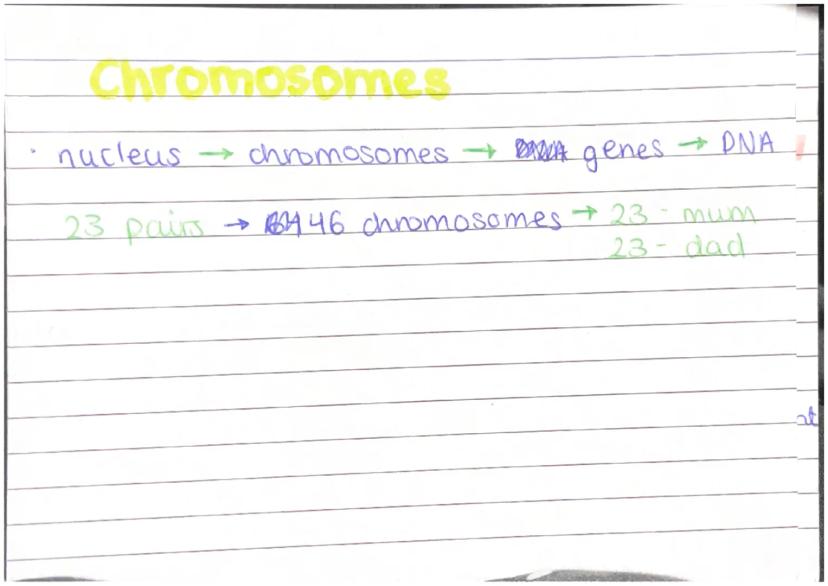 Chromosomes
· nucleus → chromosomes → genes → DNA
23 pairs → 46 chromosomes → 23 - mum
23 - dad